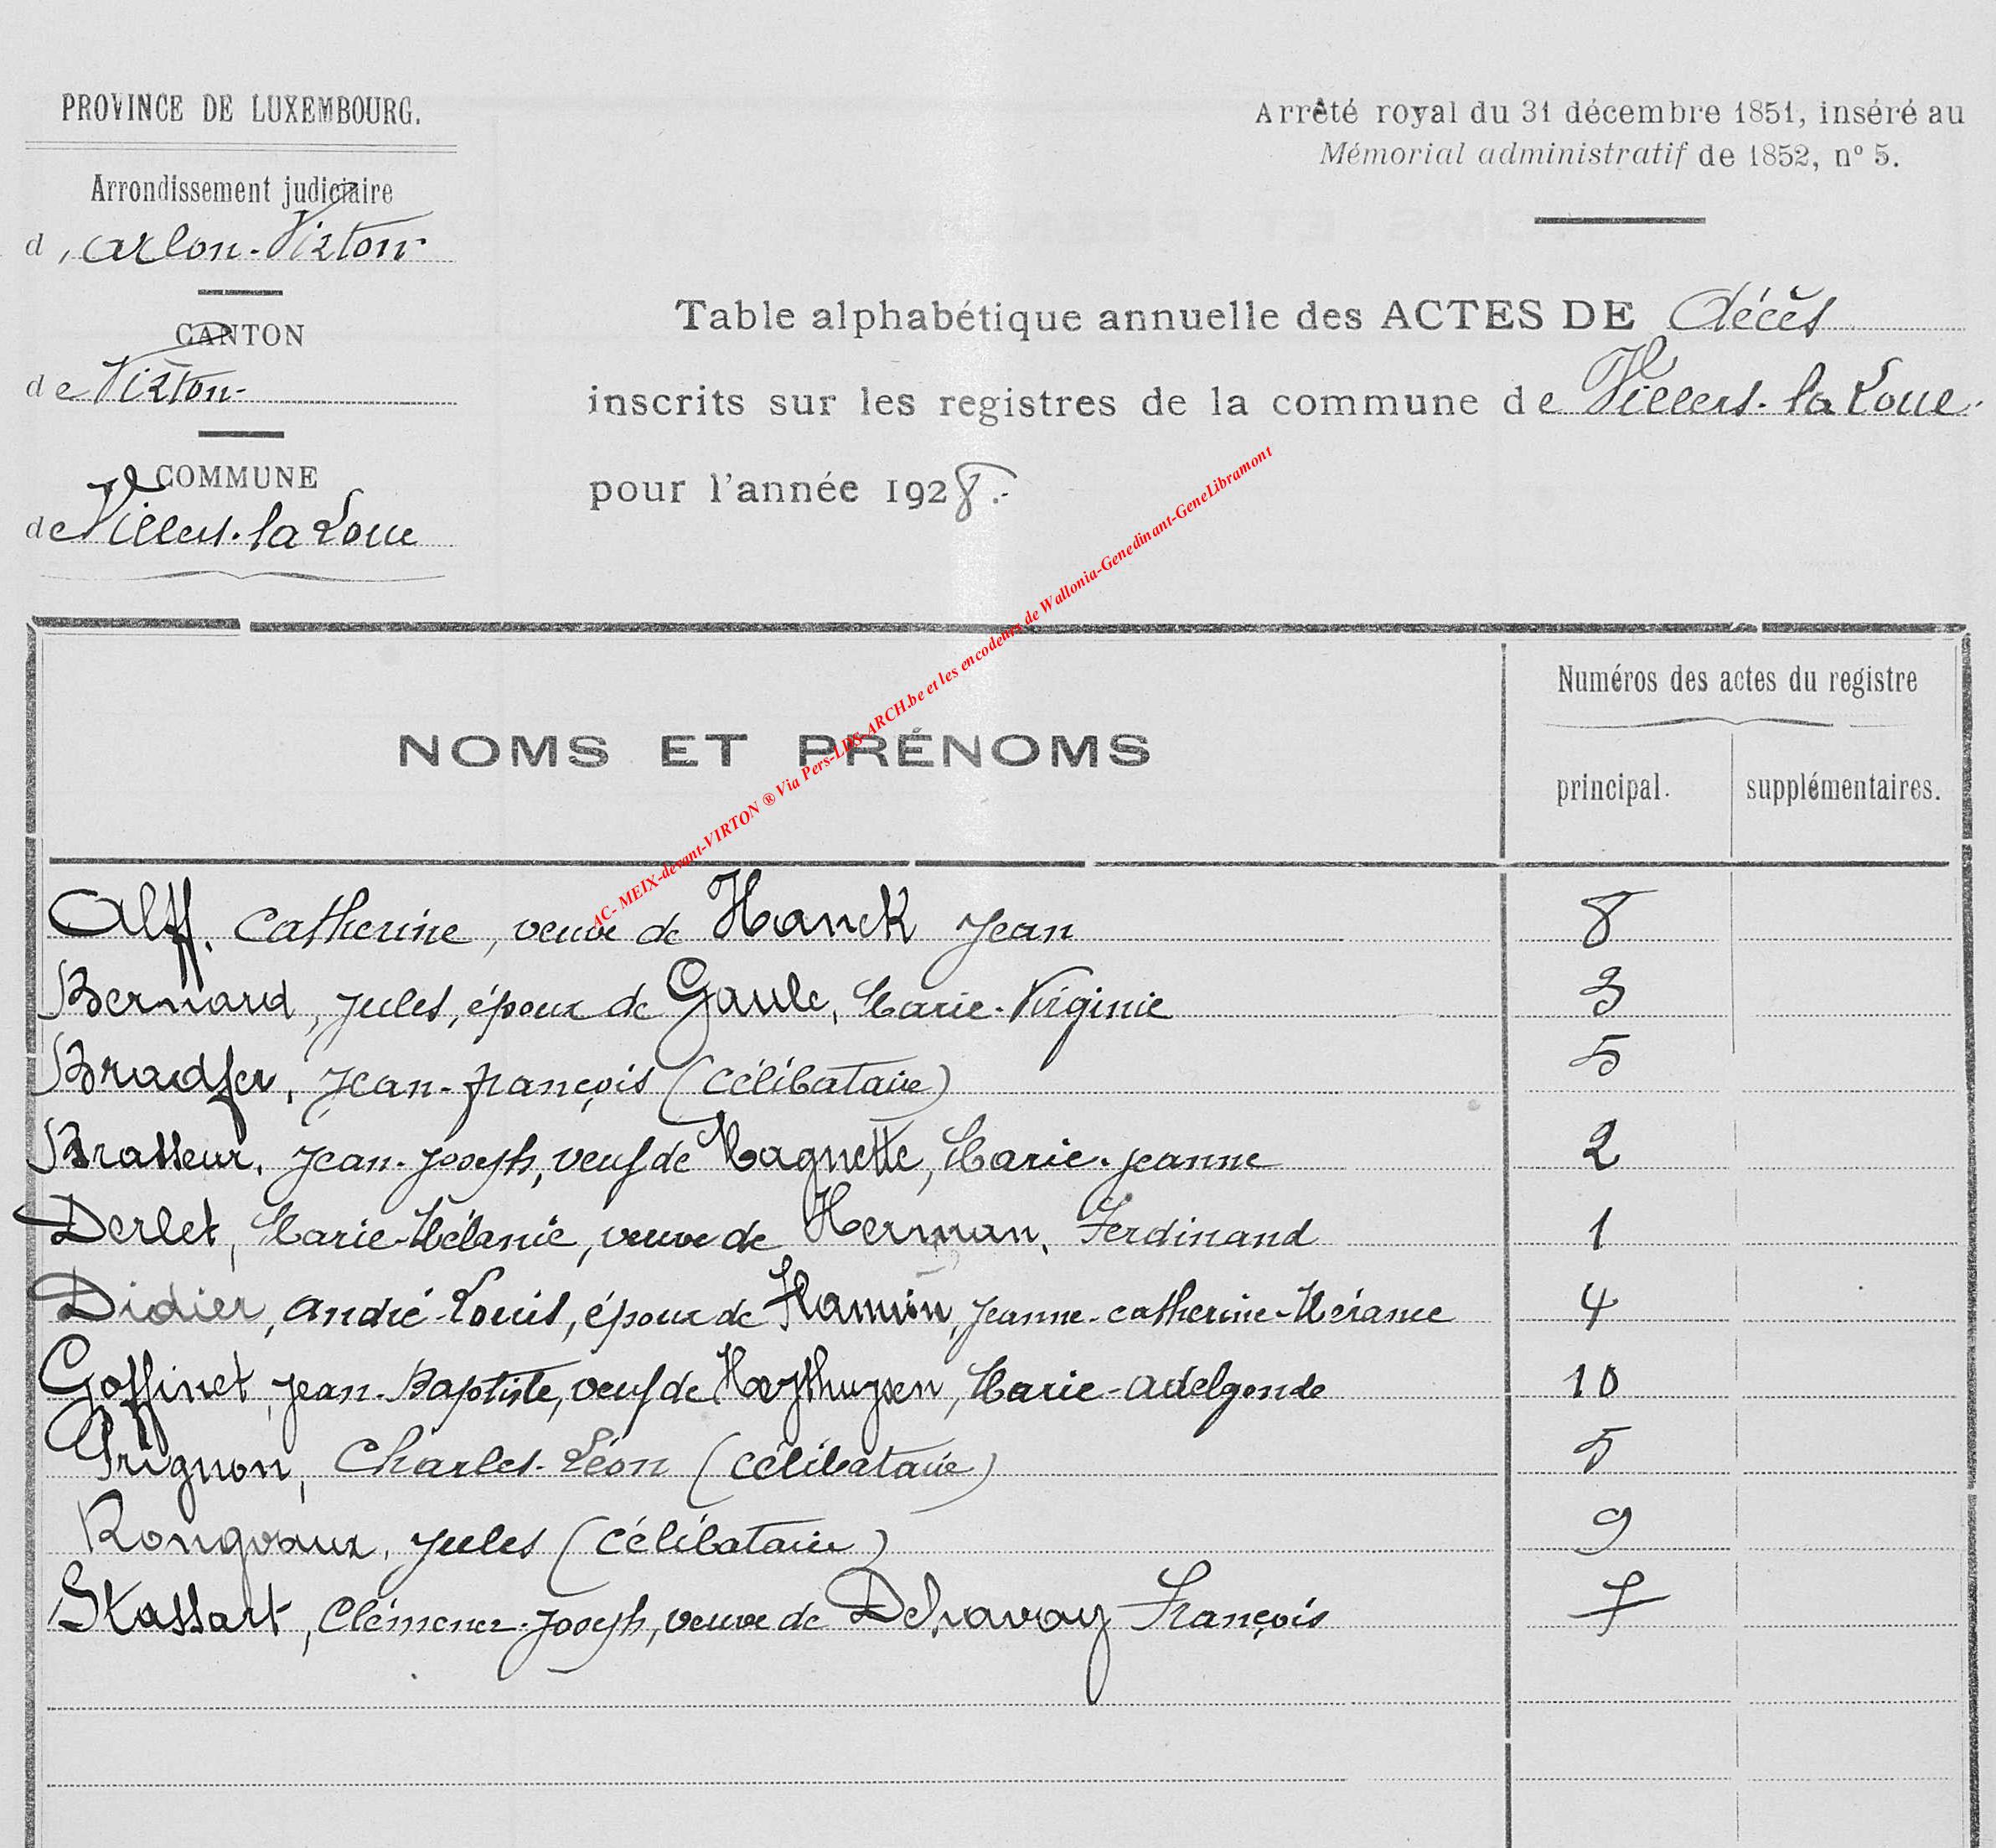 PROVINCE DE LUXEMBOURG.
Arrondissement judiciaire
d'Arlon-Virton
CANTON
de Virton
COMMUNE
de Villers-la Loue
Arrêté royal du 31 décembre 1851, inséré au
Mémorial administratif de 1852, nº 5.
Table alphabétique annuelle des ACTES DE décès
inscrits sur les registres de la commune de Villers-la Loue.
pour l'année 1928.
AC- MEIX-devant-VIRTON ® Via Pers-LDS-ARCH.be et les encodeurs de Wallonia-Genedinant-GeneLibramont
NOMS ET PRÉNOMS
Numéros des actes du registre
principal. supplémentaires.
Alff, Catherine, veuve de Hanck Jean 8
Bernard, Jules, époux de Gaule, Marie-Virginie 3
Bradfer, Jean-François (célibataire) 5
Brasseur, Jean-Joseph, veuf de Magnette, Marie-Jeanne 2
Derlet, Marie-Mélanie, veuve de Herman, Ferdinand 1
Didier, André-Louis, époux de Hamion, Jeanne-Catherine- 4
Goffinet, Jean-Baptiste, veuf de Marie-Adelgonde 10
Grignon, Charles-Léon (célibataire) 5
Rongvaux, Jules (célibataire) 9
Stassart, Clémence-Joseph, veuve de Dehavay François 7